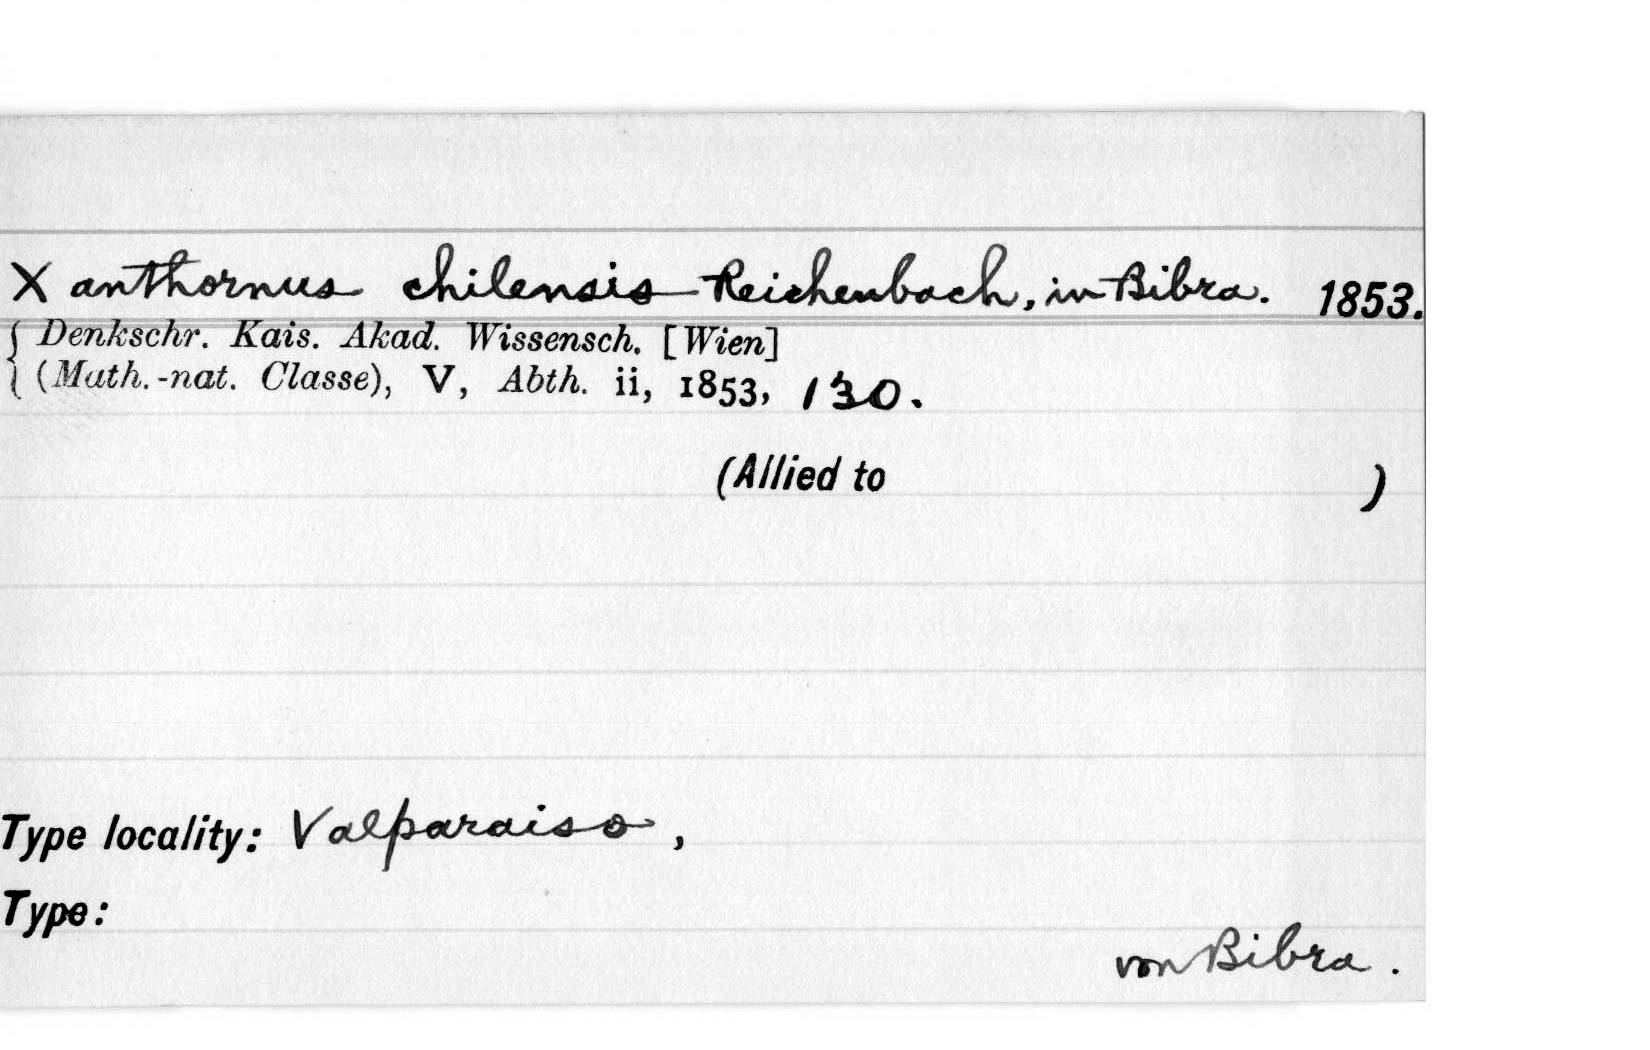 Xanthornus chilensis Reichenbach, in Bibra. 1853.
{ Denkschr. Kais. Akad. Wissensch. [Wien]
(Math.-nat. Classe), V, Abth. ii, 1853, 130.
(Allied to )
Type locality: Valparaiso,
Type:
von Bibra.